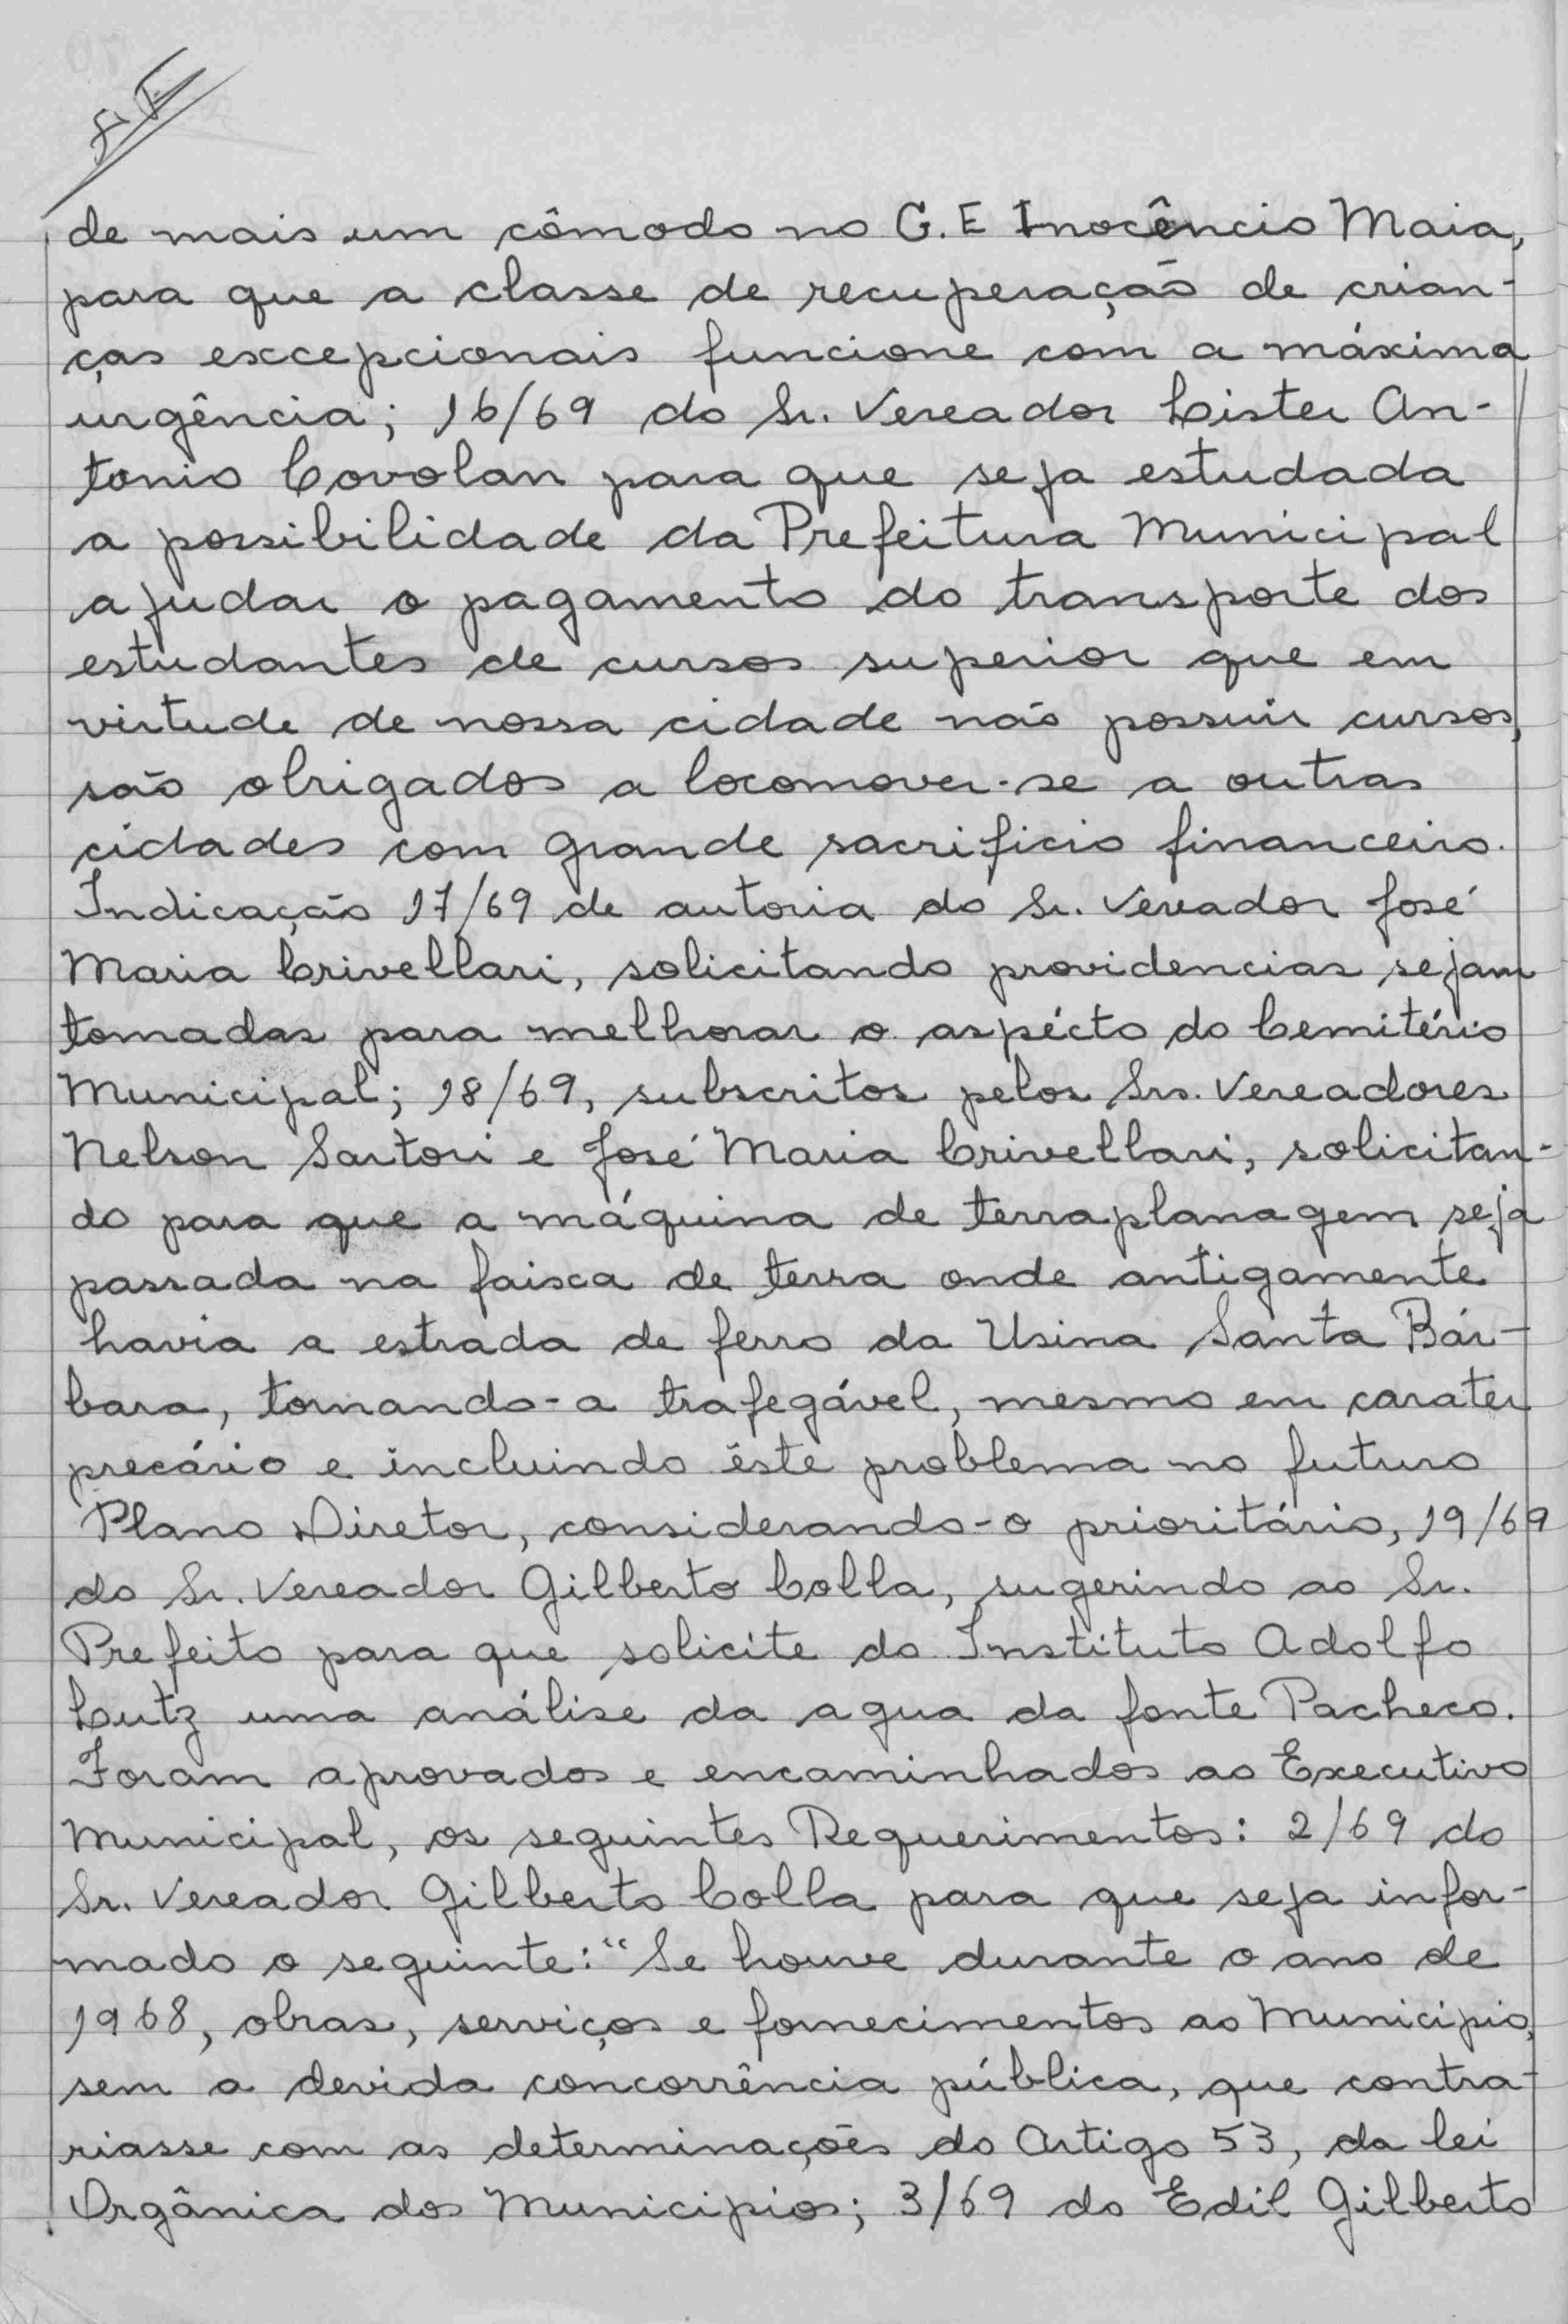 de mais um cômodo no G.E Inocêncio Maia,
para que a classe de recuperação de crian-
ças excepcionais funcione com a máxima
urgência; 16/69 do Sr. Vereador Lister An-
tonio Covolan para que seja estudada
a possibilidade da Prefeitura Municipal
ajudar o pagamento do transporte dos
estudantes de cursos superior que em
virtude de nossa cidade não possuir cursos,
são obrigados a locomover-se a outras
cidades com grande sacrificio financeiro.
Indicação 17/69 de autoria do Sr. Vereador José
Maria Crivellari, solicitando providencias sejam
tomadas para melhorar o aspécto do Cemitério
Municipal; 18/69, subscritos pelos Srs. Vereadores
Nelson Sartori e José Maria Crivellari, solicitan-
do para que a máquina de terraplanagem seja
passada na faisca de terra onde antigamente
havia a estrada de ferro da Usina Santa Bár-
bara, tornando-a trafegável, mesmo em carater
precário e incluindo êste problema no futuro
Plano Diretor, considerando-o prioritário, 19/69
do Sr. Vereador Gilberto Colla, sugerindo ao Sr.
Prefeito para que solicite do Instituto Adolfo
Lutz uma análise da agua da fonte Pacheco.
Foram aprovados e encaminhados ao Executivo
Municipal, os seguintes Requerimentos: 2/69 do
Sr. Vereador Gilberto Colla para que seja infor-
mado o seguinte: "Se houve durante o ano de
1968, obras, serviços e fornecimentos ao Municipio,
sem a devida concorrência pública, que contra-
riasse com as determinações do Artigo 53, da lei
Orgânica dos Municipios; 3/69 do Edil Gilberto